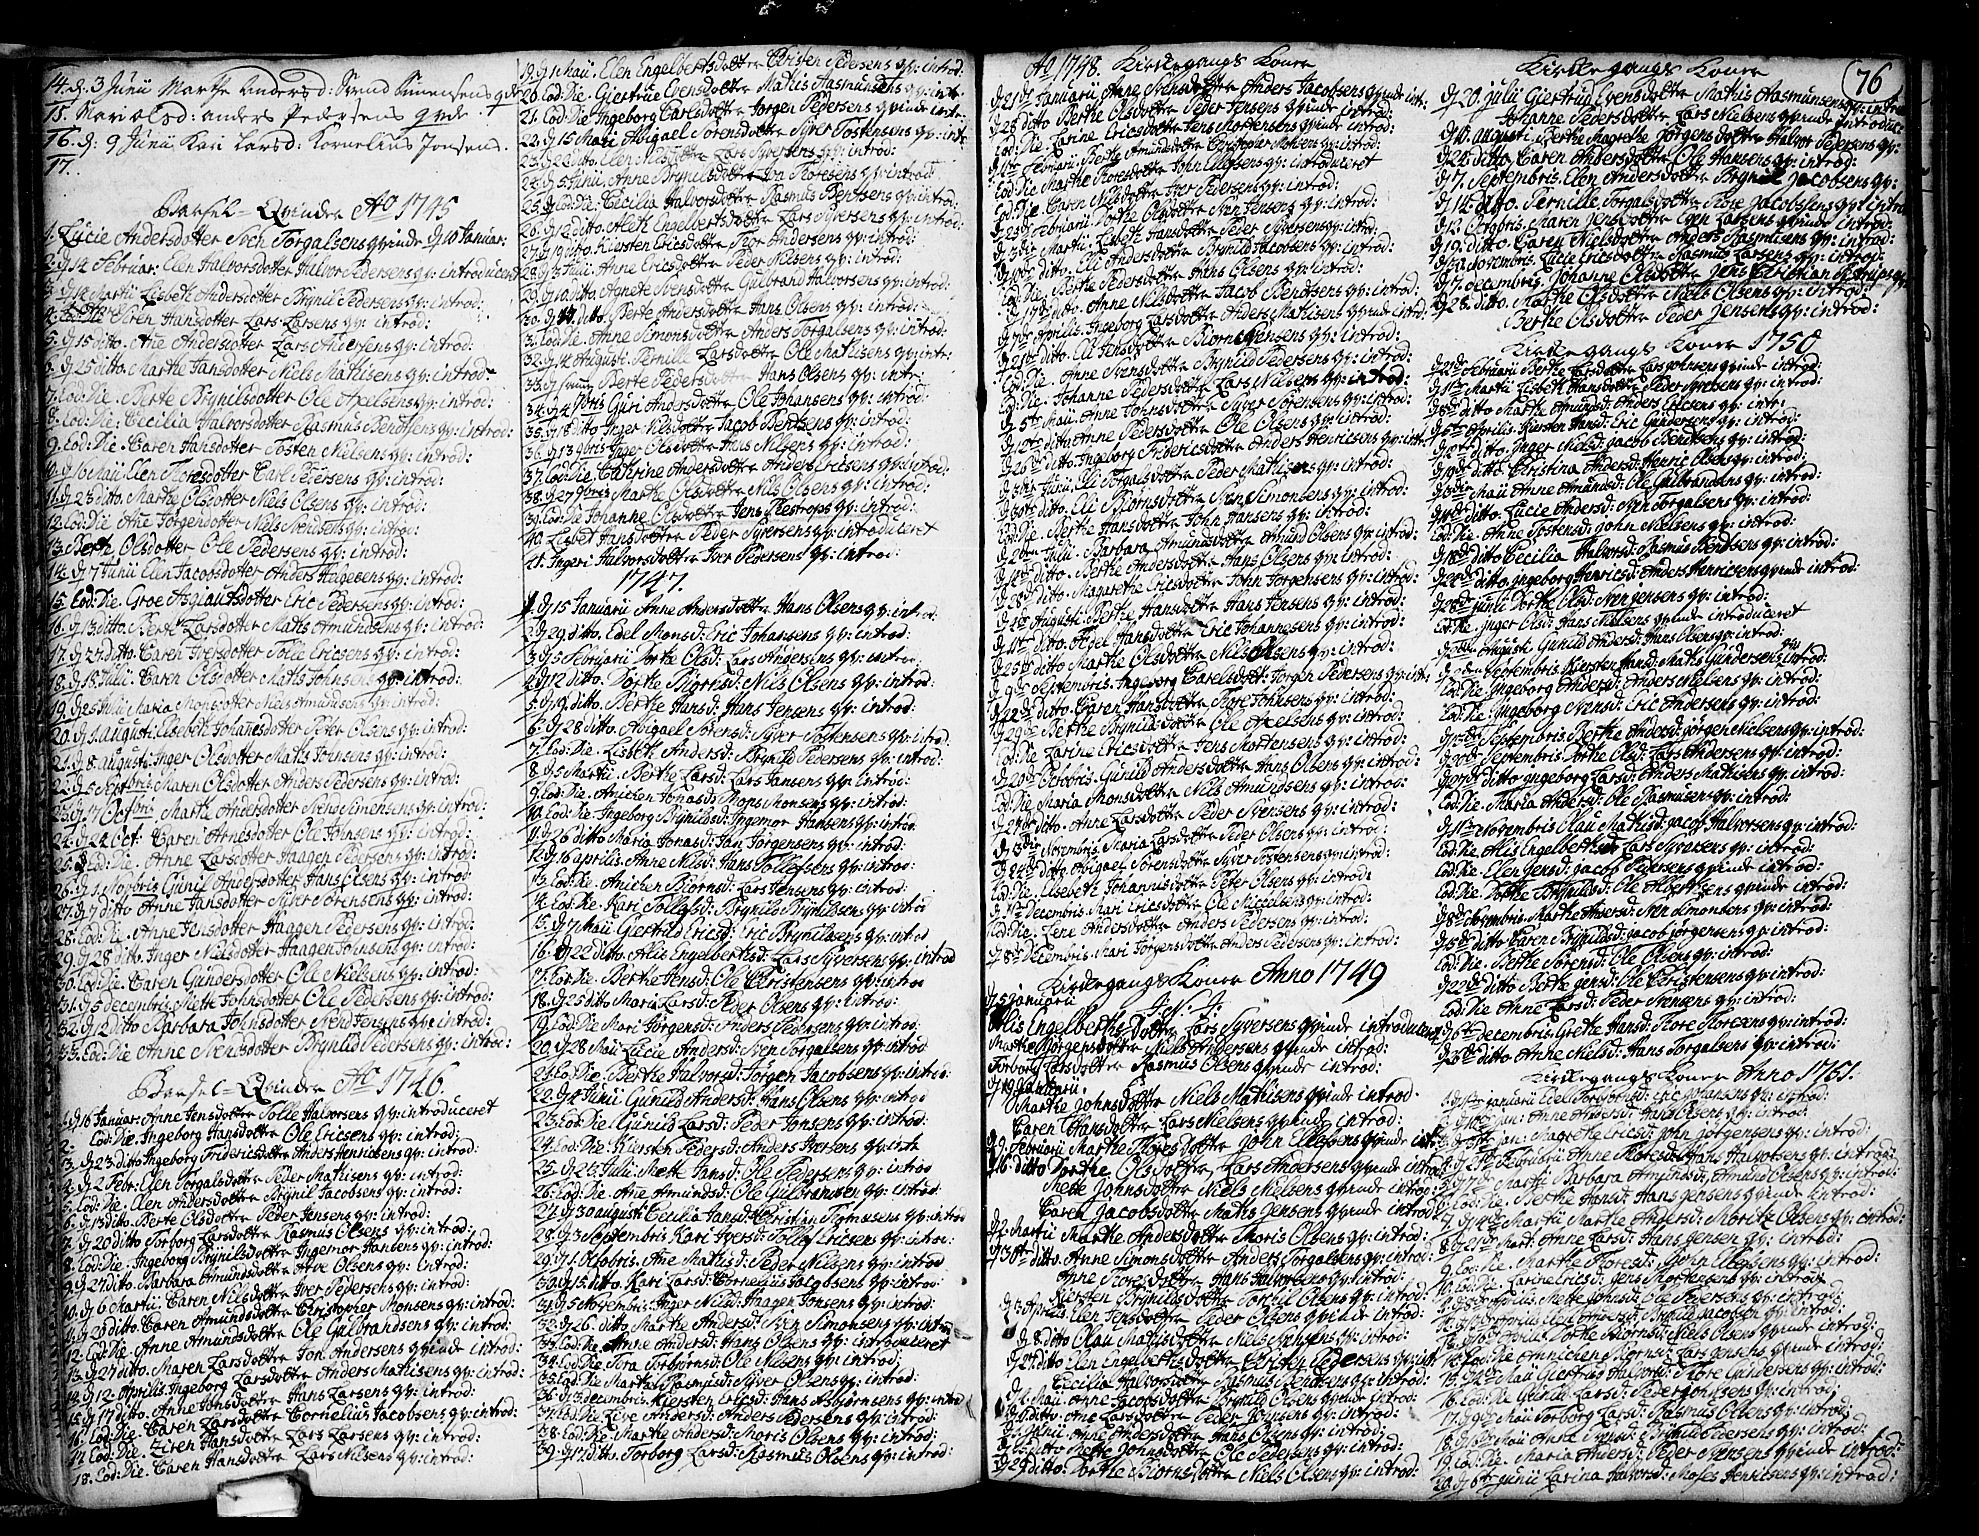 14. d. 3 Junii Marthe Andersd: Svend Simensens qvde
15. Mari olsd: anders Pedersens qvde.
16. d: 9 Junii Kari Larsd: Kornelius Jensens.
17.
Barsel-Qvinder Ao 1745
1. Lucie Andersdotter Sven Torgalsens qvinde d 10 Januar:
2. d 14 Februar: Elen Halvorsdotter Halvor Pedersens qv: introduceret
3. d 14 Martii Lisbeth Andersdotter Brynild Pedersens qv: introd:
4. Eod: Die Siren Hansdotter Lars Larsens qv: introd:
5. d 15 ditto. Ane Andersdotter Lars Andersens qv: introd:
6. d 25 ditto. Marthe Hansdotter Niels Mathisens qv: introd:
7. Eod: Die. Berte Brynilsdotter Ole Axelsens qv: introd:
8. Eod: Die: Cecilia Halvorsdotter Rasmus Bendtsens qv: introd:
9. Eod: Die. Caren Hansdotter Tosten Nielsens qv: introd:
10. d 16 Maii Elen Floresdotter Carl Pedersens qv: introd:
11. d 23 ditto. Marthe Olsdotter Niels Olsens qv: introd:
12. Eod: Die Ane Jørgendotter Niels Svendsens qv: introd:
13. Berthe Olsdotter Ole Pedersens qv: introd:
14. d 7 Junii Elen Jacobsdotter Anders Helgesens qv: introd:
15. Eod: Die. Groe Asglautsdotter Eric Pedersens qv: introd:
16. d 13 ditto. Berte Larsdotter Matis Amundsens qv: introd:
17. d 24 ditto. Caren Iversdotter Tolle Ericsens qv: introd:
18. d 18 Julii Caren Olsdotter Matis Johnsens qv: introd:
19. d 25 Julii Maria Monsdotter Niels Amundsens qv: introd:
20. d 1 augusti Elisabeth Johannesdotter Peter Olsens qv: introd:
21. d 8. augusti Inger Olsdotter Matis Johnsens qv: introd:
22. d 5 Septbris. Maren Olsdotter Anders Pedersens qv: introd:
23. d 17 Octbris. Marthe Andersdotter Svend Simensens qv: introd:
24. d 24 Oct: Caren Arnesdotter Ole Johnsens qv: introd:
25. Eod: Die. Anne Larsdotter Haagen Pedersens qv: introd:
26. d 1. Novbris Gunil Andersdotter Hans Olsens qv: introd
27. d 7 ditto Anne Hansdotter Syver Sørensens qv: introd:
28. Eod: Die. Anne Jensdotter Haagen Pedersens qv: introd:
29. d 28 ditto. Inger Nielsdotter Haagen Johnsens qv: introd:
30. Eod: Die. Caren Gundersdotter Ole Nielsens qv: introd:
31. d 5 decembris. Mette Johnsdotter Ole Pedersens qv: introd:
32. d 12 Ditto Barbara Johnsdotter Svend Jensens qv: introd:
33. Eod: Die Anne Svendsdotter Brynild Pedersens qv: introd:
Barsel-Qvinder Ao 1746.
1. d 16 Januar: Anne Jensdotter Tolle Halvorsens qv: introduceret
2. Eod: Die. Ingeborg Hansdotter Ole Ericsens qv: introd:
3. d 23 ditto Ingeborg Fridericsdotter Anders Henricsens qv: introd:
4. d 2 Febr: Elen Torgalsdotter Peder Mathisens qv: introd:
5. Eod: Die. Elen Andersdotter Brynil Jacobsens qv: introd:
6. d 13 ditto. Berte Olsdotter Peder Jensens qv: introd:
7. d 20 ditto Torborg Larsdotter Rasmus Olsens qv: introd:
8. Eod: Die. Ingeborg Brynilsdotter Ingemor Hansens qv: introd:
9. d 27 ditto. Barbara Amundsdotter Arve Olsens qv: introd:
10. d 6 Martii Caren Nilsdotter Iver Pedersens qv: introd:
11. d 20 ditto. Caren Amundsdotter Christopher Monsens qv: introd:
12. Eod: Die. Anne Amundsdotter Ole Gulbrandsens qv: introd:
13. d 27 ditto. Maren Larsdotter Jon Andersens qvinde introd:
14. d 12 Aprilis. Ingeborg Larsdotter Anders Mathisens qv: introd:
15. d 17 ditto. Anne Jonsdotter Hans Larsens qv: introd:
16. Eod: Die. Caren Larsdotter Cornelius Jacobsens qv: introd:
17. Eod: Die. Ziren Hansdotter Lars Larsens qv: introd:
18. Eod: Die. Caren Hansdotter Lars Nielsens qv: introd:
19. d 1 Maii. Elen Engelbertsdotter Christen Pedersens qv: introd:
20. Eod: Die. Giertrue Evensdotter Mathis Rasmundsens qv: intr
21. Eod: Die Ingeborg Carlsdotter Jørgen Pedersens qvinde intr:
22. d 15 Maii Abigael Sørensdotter Siver Tostensens qv: intr:
23. d 22 ditto. Elen Nilsdotter Lars Syversens qv: introd:
24. d 5 Junii. Anne Brynilsdotter Floresens qv: introd:
25. Eod: Die. Cecilia Halvorsdotter Rasmus Bentsens qv: introd:
26. d 12 ditto Aleth Engelbertsdotter Lars Syversens qv: introd:
27. d 19 ditto. Kiersten Ericsdotter Flor Andersens qv: introd:
28. d 3 Julii. Anne Ericsdotter Peder Nilsens qv: introd:
29. d 10 ditto. Agnete Svensdotter Gulbrand Halvorsens qv: introd:
30. d 17 ditto Berte Andersdotter Hans Olsens qv: introd:
31. Eod: Die. Anne Simonsdotter Anders Torgalsens qv: introd:
32. d 14 Augusti. Pernille Larsdotter Ole Mathisens qv: intr:
33. Berte Pedersdotter Hans Olsens qv: intr:
34. d 4 Guri Andersdotter Ole Johansens qv: introd:
35. d 18 ditto Inger Nilsdotter Jacob Bentsens qv: introd:
36. d 13 Inger Olsdotter Hans Nilsens qv: introd:
37. Eod: Die. Cathrine Andersdotter Anders Ericsens qv: introd:
38. d 27 Marthe Olsdotter Nils Olsens qv: introd:
39. Eod: Die Johanne Olsdotter Jens Reestrops qv: introd:
40. Lisbet Hansdotter Peder Syversens qv: introduceret
41. Ingeri Halvorsdotter Iver Pedersens qv: introd:
1747.
1. d 15 Januarii Anne Andersdotter Hans Olsens qv: introd:
2. d 29 ditto. Edel Monsd: Eric Johansens qv: introd:
3. d 5 Februarii Dorte Olsd: Lars Andersens qv: introd:
4. d 12 ditto. Dorthe Biørnsd: Nils Olsens qv: introd:
5. d 19 ditto. Berthe Hansd: Hans Jensens qv: introd:
6. d 28 ditto. Abigael Sørensd: Syver Tostensens qv: introd:
7. Eod: Die. Lisbeth Andersd: Brynild Pedersens qv: introd:
8. d 5 Martii. Berthe Larsd: Lars Hansens qv: introd:
9. Eod: Die. Anichen Jonasd: Mons Monsens qv: introd:
10. Eod: Die. Ingeborg Brynildsd: Ingemor Hansens qv: introd:
11. d 26 ditto Maria Jonasd: Jan Jørgensens qv: introd:
12. d 16 aprilis. Anne Nilsd: Hans Tollefsens qv: introd:
13. Eod: Die. Anichen Biørnsd: Lars Jensens qv: introd:
14. Eod: Die. Kari Tollefsd: Brynild Brynildsens qv: introd
15. d 7 Maii Gierthild Ericsd: Eric Brynildsens qv: introd
16. d 22 ditto. Alis Engelbertsd: Lars Syversens qv: introd
17. Eod: Die. Berthe Jensd: Ole Christensens qv: introd
18. d 25 ditto Maria Larsd: Peder Olsens qv: introd:
19. Eod: Die Mari Jørgensd: Anders Pedersens qv: introd:
20. d 28 Maii Lucie Andersd: Sven Torgalsens qv: introd
21. Eod: Die. Berthe Halvorsd: Jørgen Jacobsens qv: introd:
22. d 18 Junii Gunild Andersd: Hans Olsens qv: introd
23. Eod: Die Gunild Larsd: Peder Jonsens qv: introd:
24. Eod: Die. Kiersten Pedersd: Anders Iversens qv: introd
25. d 23 Julii Mette Hansd: Ole Pedersens qv: introd
26. Eod: Die. Ane Amundsd: Ole Gulbrandsen qv: introd
27. d 30 augusti Cecilia Hansd: Christian Tomæsens qv: introd
28. d 3 Septembris. Kari Iversd: Tollef Ericsens qv: introd:
29. d 1. Octobris. Ane Mathisd: Peder Nielsens qv: introd
30. d 15 ditto. Kari Larsd: Cornelius Jacobsens qv: introd
31. d 5 Novembris. Inger Nilsd: Haagen Jonsens qv: introd:
32. d 26. ditto. Marthe Andersd: Sven Simonsens qv: introd
33. Eod: Die. Anne Andersd: Hans Olsens qv: introduceret
34. Eod: Die. Tora Torbiørnsd: Ole Nielsens qv: introd:
35. Eod: Die Marthe Rasmusd: Syver Olsens qv: introd:
36. d 3 decembris. Kiersten Ericsd: Hans Asbiørnsens qv: introd
37. Eod: Die Leve Andersd: Anders Pedersens qv: introd
38. Eod: Die. Marthe Andersd: Moris Olsens qv: introd:
39. d 17. ditto. Torborg Larsd: Rasmus Olsens qv: introd:
Ao 1748. Kirkegangs Koner
d 21de Januarii Anne Svensdotter Anders Jacobsens qvinde int:
d 28 ditto Berthe Olsdotter Peder Jensens qvinde introd:
Eod: Die. Carine Ericsdotter Jens Mortensens qvinde introd:
Februarii. Berthe Amundsdotter Christopher Monsens qv: introd:
Eod: Die Marthe Floresdotter John Ellefsens qv: introduceret
Eod: Die. Caren Nielsdotter Iver Pedersens qv: introd:
d 25 Februarii Dorthe Olsdotter Sven Jensens qv: introd:
d 3die Martii. Lisbeth Hansdotter Peder Syversens qv: introd:
d 10de ditto. Eli Andersdotter Brynild Jacobsens qv: introd:
Eod: Die Berthe Pedersdotter Hans Olsens qv: introd:
d 17de ditto. Anne Nilsdotter Jacob Bendtsens qv: introd:
Aprilis. Ingeborg Larsdotter Anders Mathisens qvinde introd:
d 21de ditto. Eli Jensdotter Biørn Jensens qv: introd:
Eod: Die. Anne Svensdotter Brynild Pedersens qv: introd:
Eod: Die. Johanne Pedersdotter Lars Nielsens qv: introd:
d 5te Maii. Anne Johnsdotter Syver Sørensens qv: introd:
d 12te ditto Anne Pedersdotter Ole Olsens qv: introd:
d 26 ditto. Ingeborg Fridericsdotter Anders Henricsens qv: int:
d 3die Junii. Eli Torgalsdotter Peder Mathisens qv: introd:
d 30te ditto. Eli Biørnsdotter Sven Simonsens qv: introd:
Eod: Die. Berthe Hansdotter John Hansens qv: introd:
Julii. Barbara Amundsdotter Amund Olsens qv: introd:
ditto. Berthe Andersdotter Hans Olsens qv: introd:
d 28de ditto. Magarethe Ericsdotter John Jørgensens qv: introd:
Augusti. Berthe Hansdotter Hans Jensens qv: introd:
d 11te ditto. Axel Hansdotter Eric Johannesens qv: introd:
d 25te ditto Marthe Olsdotter Niels Olsens qv: introd:
Septembris. Ingeborg Carelsdotter Jørgen Pedersens qv: int:
d 22de ditto Caren Hansdotter Flore Johnsens qv: introd:
d 29de Berthe Brynildsdotter Ole Axelsens qv: introd:
Eod: Die Zarine Ericsdotter Jens Mortensens qv: introd:
d 20de Octobris. Gunild Andersdotter Hans Olsens qv: introd:
Eod: Die Maria Monsdotter Niels Amundsens qv: introd:
d 27de ditto. Anne Larsdotter Peder Svensens qv: introd:
Novembris. Maria Larsdotter Peder Olsens qv: introd:
d 24de ditto. Abigael Sørensdotter Syver Tostensens qv: introd:
Eod: Die. Elisebeth Johannisdotter Peter Olsens qv: introd
Decembris. Mari Ericsdotter Ole Michelsens qv: introd:
Eod: Die. Lene Andersdotter Anders Pedersens qv: introd:
d 8de Decembris. Mari Jørgensdotter Anders Pedersens qv: introd:
Kirkegangs Koner Anno 1749
d 5 januarii
Alis Engelberths Dotter Lars Syversens qvinde introduceret
Marthe Jørgensdotter Niels Andersens qvinde introd:
Torborg Larsdotter Rasmus Olsens qvinde introd:
d 19 Januarii.
Marthe Johnsdotter Niels Mathisens qvinde introd:
Caren Hansdotter Lars Nielsens qvinde introd:
Februarii Marthe Floresdotter John Ellefsens qvinde int:
d 16 ditto Dorthe Olsdotter Lars Andersens qvinde introd:
Mette Johnsdotter Niels Nielsens qvinde introd:
Caren Jacobsdotter Matis Jensens qvinde introd:
d 2 Martii Marthe Andersdotter Moris Olsens qv: introd:
d 30te ditto. Anne Simonsdotter Anders Torgalsens qv: introd:
Anne Floresdotter Hans Halvorsens qv: introd:
Kiersten Brynildsdotter Torkil Olsens qv: introd:
Aprilis. Elen Jensdotter Peder Olsens qvinde introd:
d 8 ditto Olau Mathisdotter Niels Jensens qv: introd:
d 27 ditto Elen Engelberthsdotter Christen Pedersens qv: int
Cecilia Halvorsdotter Rasmus Bendtsens qv: introd:
Maii. Anne Jacobsdotter Brynild Olsens qvinde introd:
ditto. Ane Larsdotter Peder Johnsens qv: introd:
Junii. Anne Andersdotter Hans Olsens qv: introd:
ditto Mette Johnsdotter Ole Pedersens qv: introd:
d 29 ditto. Dorthe Biørnsdotter Niels Olsens qv: introd:
Kirkegangs Koner
76
d 20. julii Giertrug Evensdotter Mathis Rasmunsens qv: introd
Johanne Pedersdotter Lars Nielsens qvinde introduc:
d 10. augusti. Berthe Magrethe Jørgensdotter Halvor Pedersens qv:
d 24 ditto. Caren Andersdotter Ole Hansens qv: introd:
d 7. Septembris. Elen Andersdotter Brynild Jacobsens qv:
d 14 ditto. Pernille Torgalsdotter Flore Jacobsens qv: introd
d 12. Octobris. Maren Jensdotter Even Larsens qvinde introd:
d 19 ditto. Caren Nielsdotter Anders Rasmusens qv: introd:
Novembris. Lucie Ericsdotter Rasmus Larsens qv: introd:
d 7. decembris. Johanne Olsdotter Jens Christian Restrups qv:
d 28. ditto. Marthe Olsdotter Niels Olsens qv: introd:
Berthe Olsdotter Peder Jensens qv: introd:
Kirkegangs Koner 1750
Februarii Berthe Larsdotter Lars Johnsens qvinde introd:
Martii Lisbeth Hansdotter Peder Syversens qv: introd:
d 18de ditto Marthe Amundsd: Anders Ericsens qv: intr:
Aprilis. Kiersten Hansd: Eric Gundersens qv: introd:
ditto. Inger Nielsd: jacob Bendtsens qv: introd:
ditto Christina Andersd: Henric Olsens qv: introd:
Maii Anne Amundsd: Ole Gulbrandsens qv: introd:
ditto. Lucie Andersd: Sven Torgalsens qv: introd:
Eod: Die. Anne Tostensd: john Nielsens qv: introd:
d 18de ditto Cecilia Halvorsd: Rasmus Bendtsens qv: introd:
ditto. Ingeborg Henricsd: Anders Henricsens qvinde introd:
d 28de junii Dorthe Olsd: Sven jensens qv: introd:
Eod: Die. Inger Olsd: Hans Nielsens qvinde introduceret
Augusti Gunild Andersd: Hans Olsens qv: introd:
Septembris Kiersten Hansd: Mathis Gundersens qv: introd:
Eod: Die Ingeborg Andersd: Anders Nielsens qv: introd:
Eod: Die. Ingeborg Svensd: Eric Andersens qv: introd:
Septembris Berthe Andersd: jørgen Nielsens qv: introd:
Septembris Dorthe Olsd: Lars Andersens qv: introd:
ditto Ingeborg Larsd: Anders Mathisens qv: introd:
Eod: Die. Maria Andersd: Ole Rasmusens qv: introd:
Novembris Olau Mathisd: jacob Halvorsens qv: introd:
Eod: Die. Alis Engelberthsd: Lars Syversens qv: introd:
Eod: Die. Elen jensd: jacob Pedersens qvinde introd:
Eod: Die Dorthe Brynildsd: Ole Albertsens qvinde introd:
Novembris. Marthe Andersd: Sven Simonsens qv: introd:
d 15de ditto Caren Brynildsd: jacob jørgensens qv: introd:
Eod: Die. Berthe Sørensd: Ole Olsens qv: introd:
d 22de ditto Berthe jensd: Ole Christensens qv: introd:
Eod: Die Anne Larsd: Peder Svensens qv: introd:
decembris. Grethe Hansd: Flore Floresens qv: introd:
ditto Anne Nielsd: Hans Torgalsens qv: introd:
Kirkegangs Koner Anno 1751.
januarii Edel Torbiørnsd: Eric Johansens qv: introd:
jan: Anne Andersd: Hans Olsens qv: introd:
jan: Magrethe Ericsd: john jørgensens qv: introd:
Februarii Anne Floresd: Hans Halvorsens qv: introd:
Martii Barbara Amundsd: Amund Olsens qv: introd:
Eod: Die. Berthe Hansd: Hans jensens qvinde introd:
Martii Marthe Andersd: Moritz Olsens qv: introd:
Mart. Anne Larsd: Hans jensen qv: introd:
9. Eod: Die. Marthe Floresd: John Ellefsens qv: introd:
10. Eod: Die: Carine Ericsd: jens Mortensens qv: introd:
Aprilis. Mette Johnsd: Ole Pedersens qv: introd:
Aprilis Brynild jacobsen qv: introd:
Aprilis. Dorthe Biørnsd: Niels Olsens qv: introd:
14. Eod: Die Annichen Biørnsd: Lars jensens qvinde introd:
Maii Giertrue Halvorsd: Flore Gundersens qv: introd:
16. Eod: Die Gunild Larsd: Peder johnsens qv: introd:
Maii Torborg Larsd: Rasmus Olsens qv: introd:
Maii Anne Svensd: Brynild Pedersens qv: introd:
19. Eod: Die. Maria Andersd: Peder Svensens qvinde introd:
junii Carina Halvorsd: Moses Henricsens qv: introd: